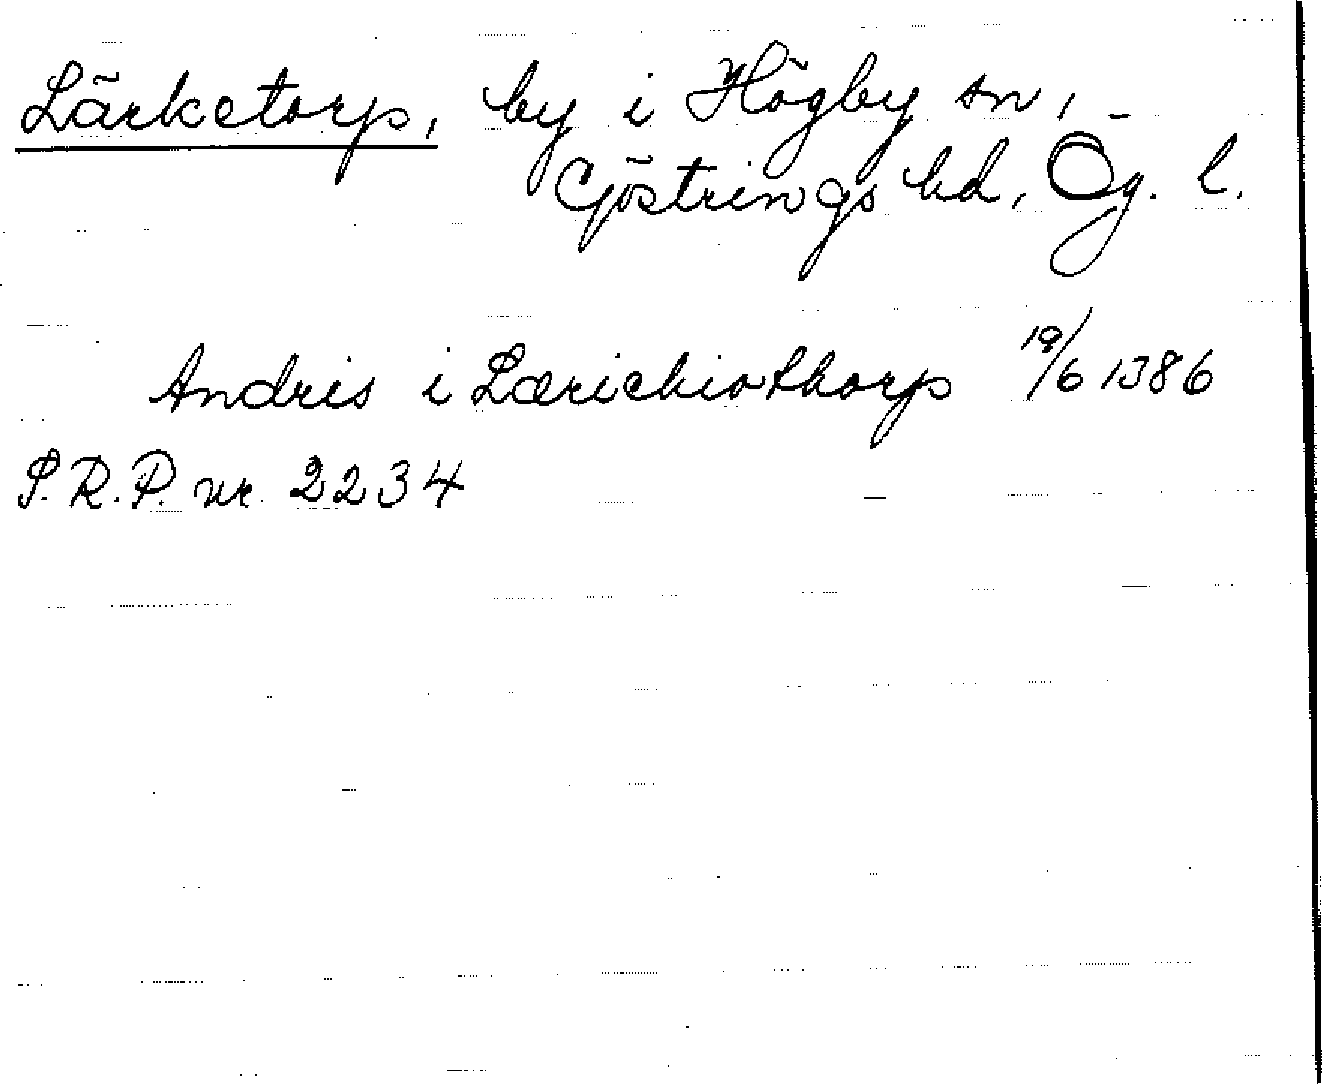 Lärketorp, by i Högby sn,
Göstrings hd, Ög. l.
Andris i Lærichiothorp 19/6 1386
S.R.P. nr. 2234